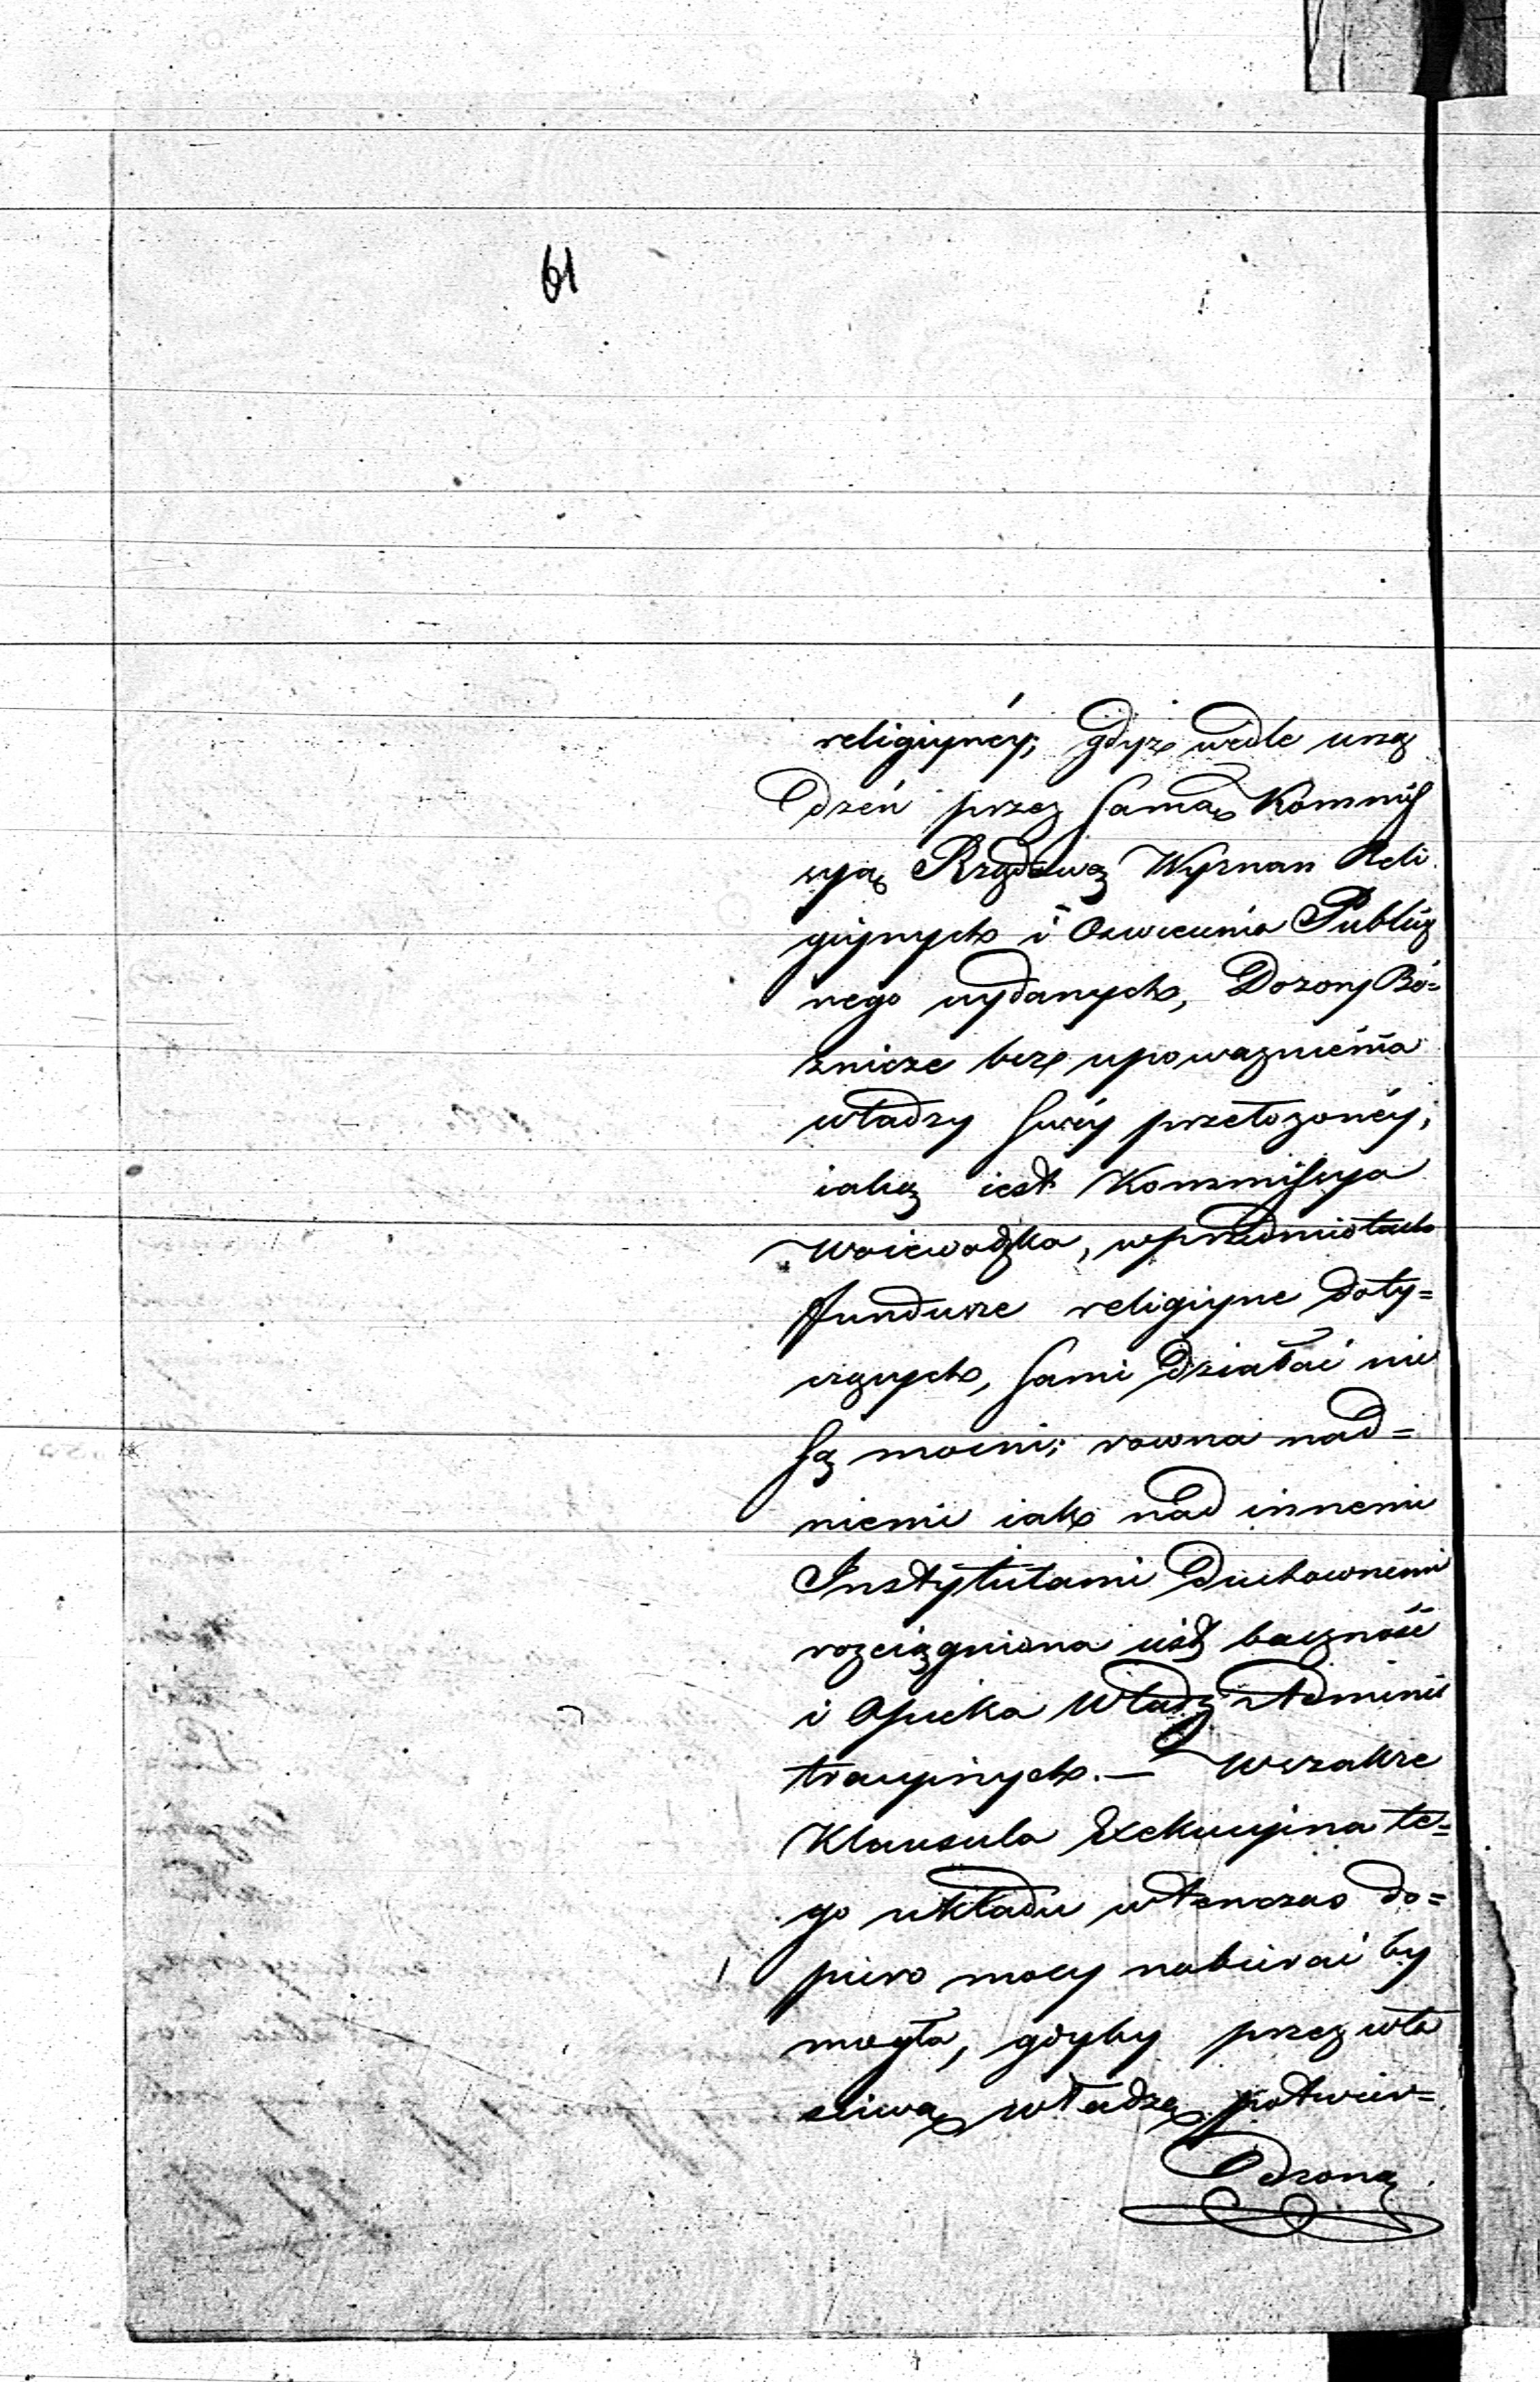 61
religiyney; gdyż wedle urzą
dzeń przez samą Kommis
syą Rządową Wyznan Reli
giynych i Oswiecenia Publicz
nego wydanych, Dozory Bó=
znicze bez upoważnienia
władzy swéy przełożonéy,
iaką iest Kommissya
Woiewodzka, w przedmiotach
fundusze religiyne doty=
czących, sami działać nie
są mocni; rowna nad=
niemi iak nad innemi
Instytutami Duchownemi
rozciągniona iest baczność
i Opieka Władz Adminis
tracyinych. — Wszakże
Klausula Exekucyina te=
go układu wtenczas do=
piero mocy nabierać by
mogła, gdyby przez wła
sciwą władzę potwier=
dzoną